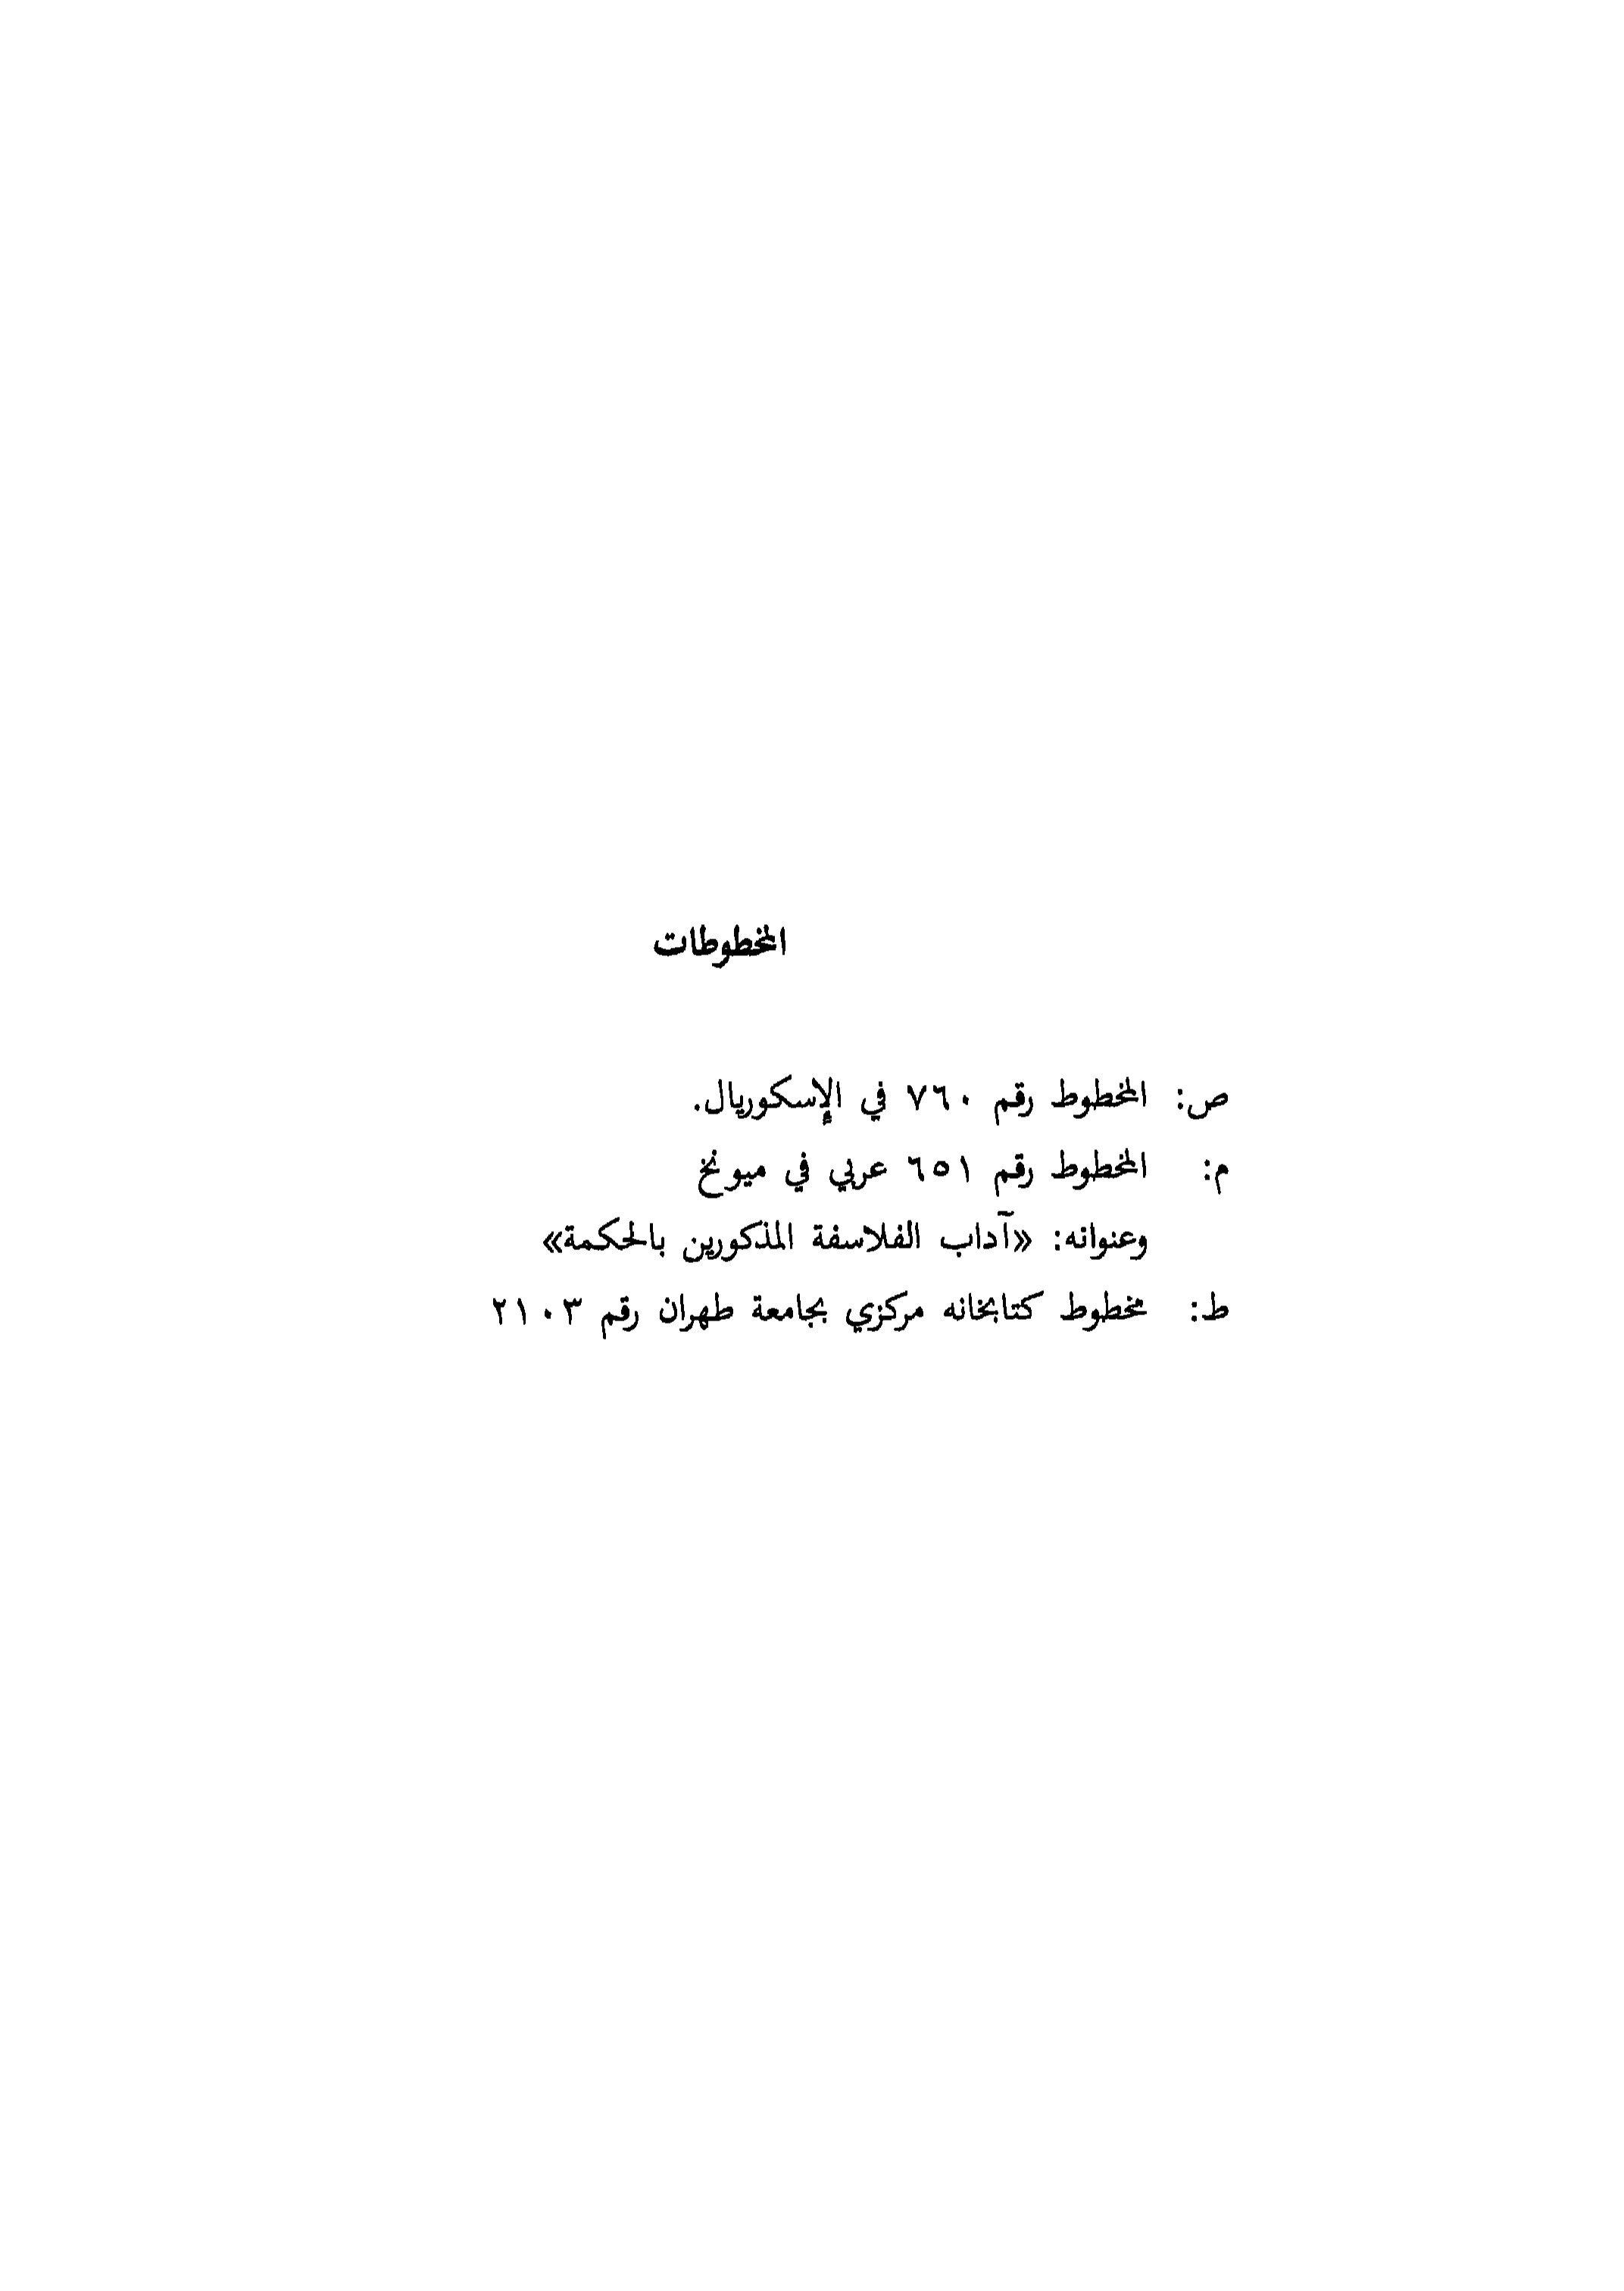 المخطوطات
ص: المخطوط رقم ٧٦٠ في الإسكوريال.
م: المخطوط رقم ٦٥١ عربي في ميونخ
وعنوانه: «آداب الفلاسفة المذكورين بالحكمة»
ط: مخطوط كتابخانه مركزي بجامعة طهران رقم ٢١٠٣